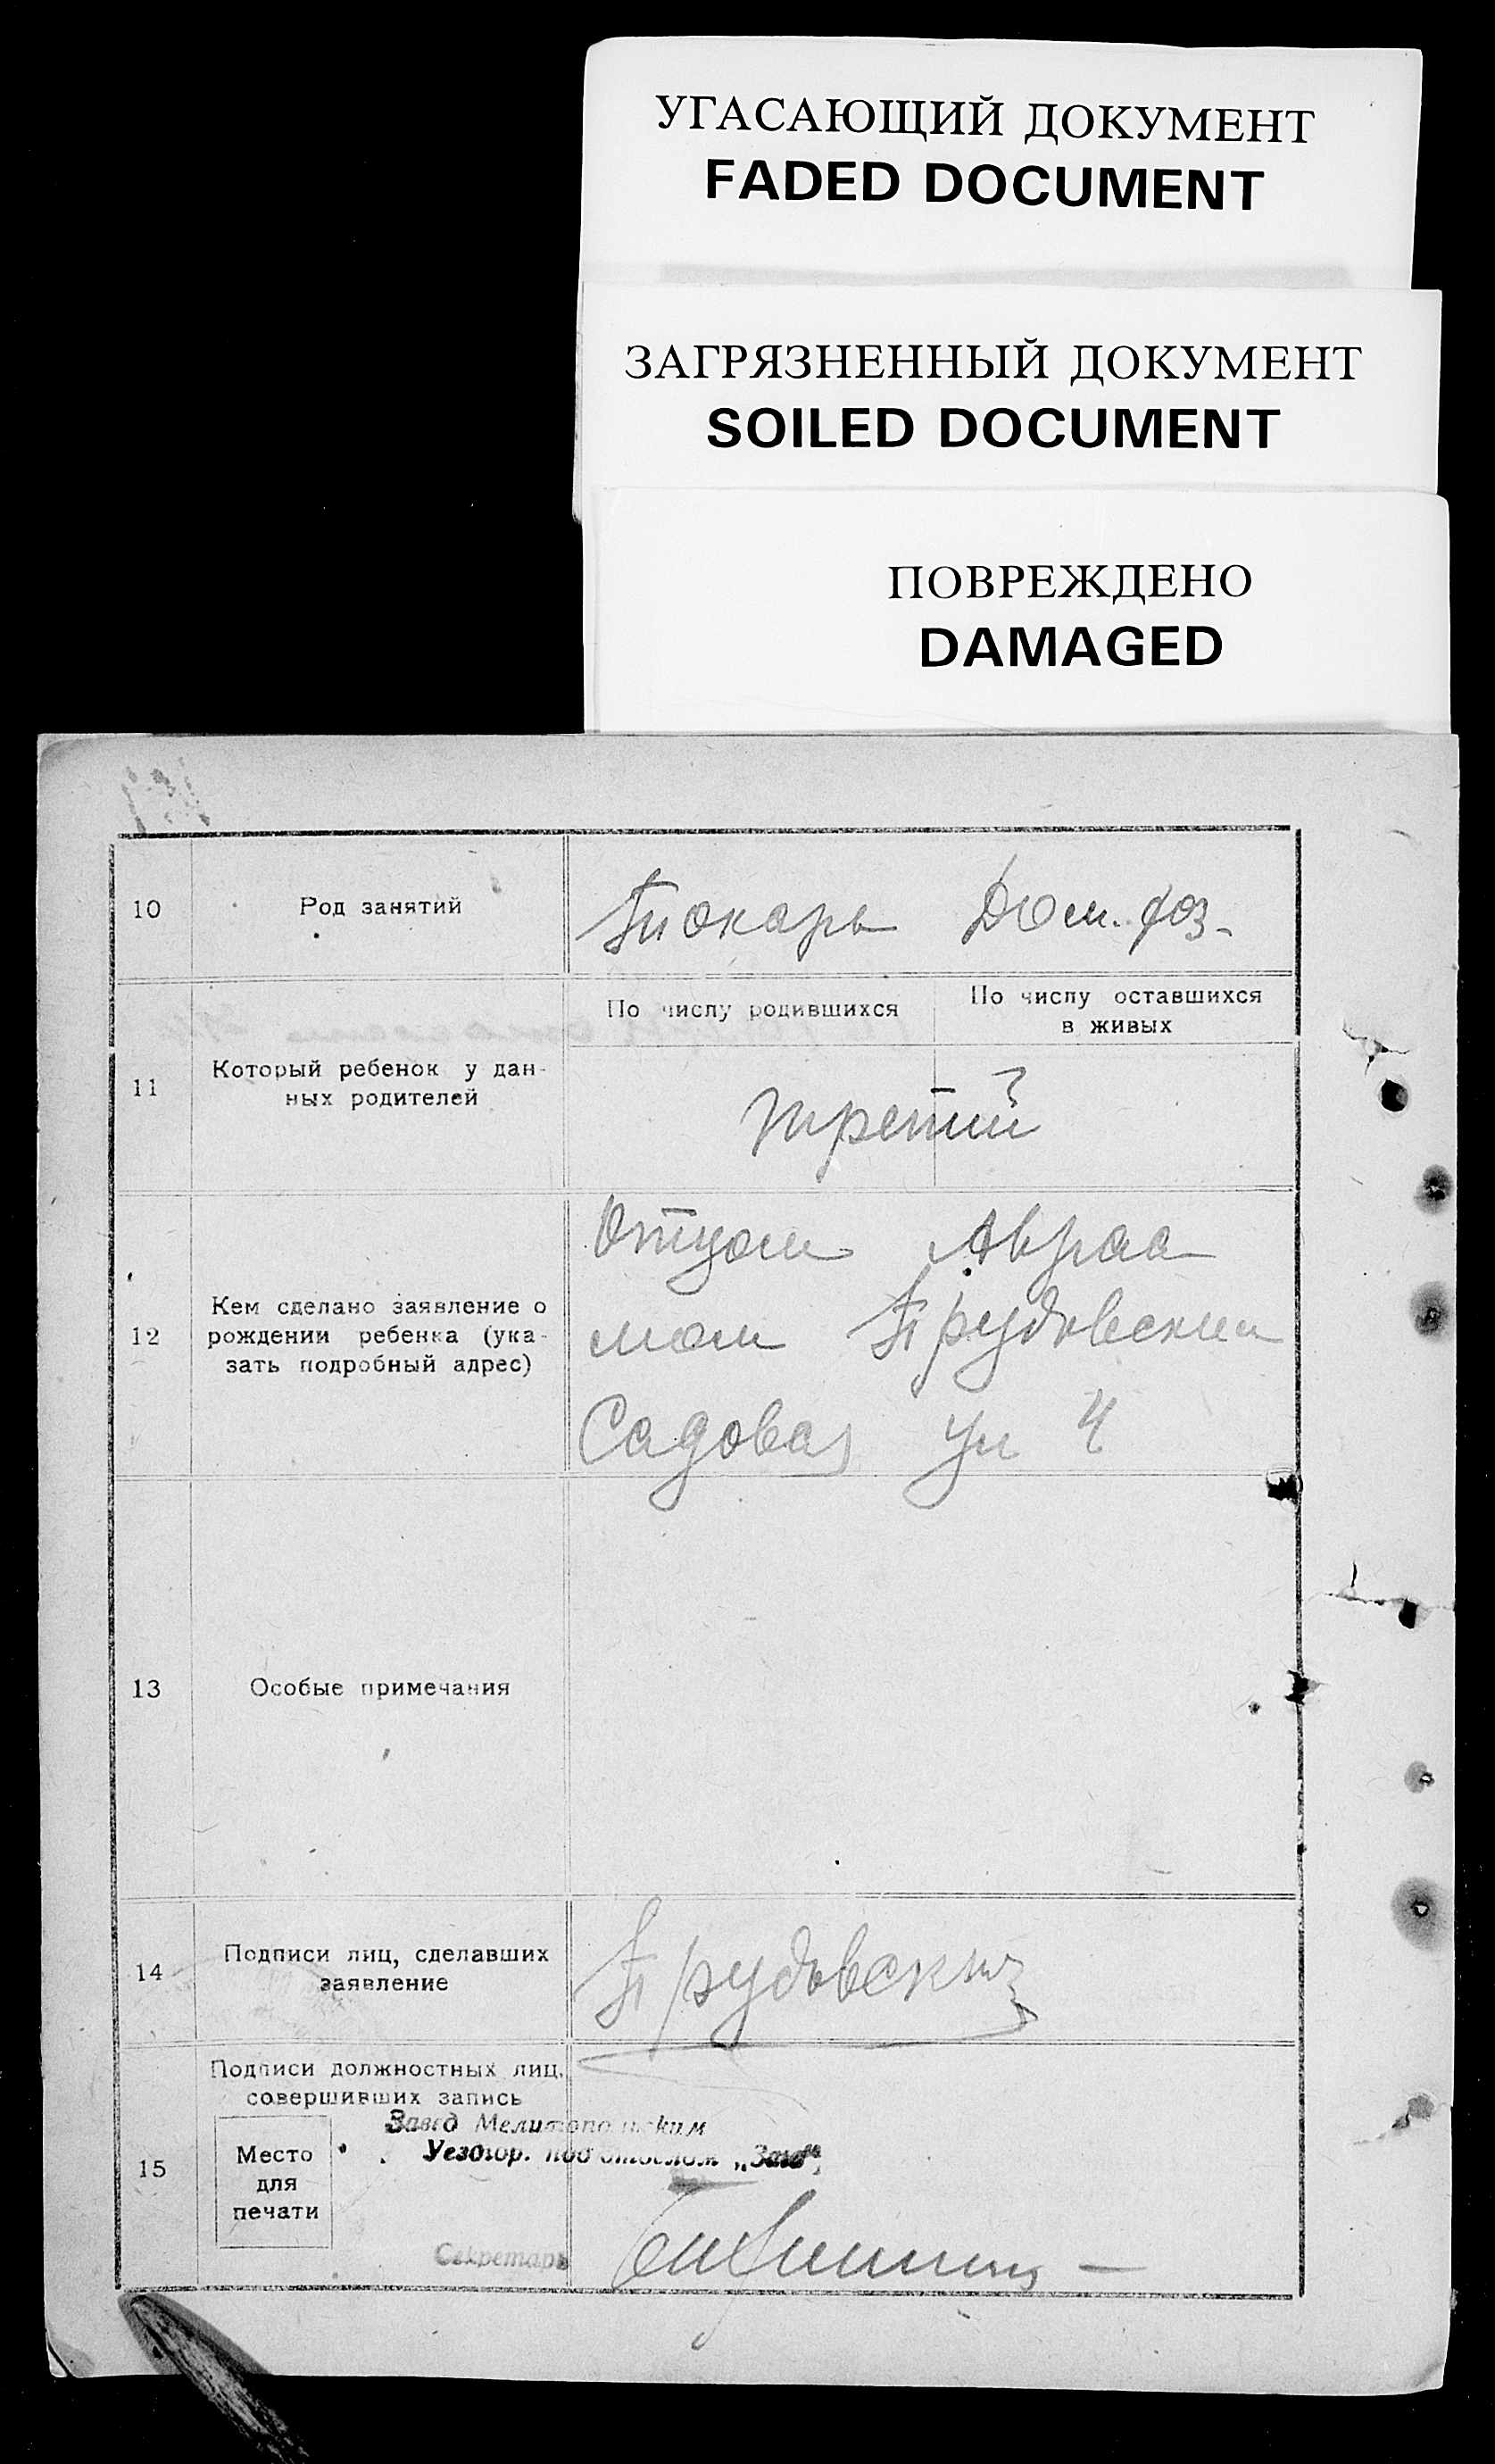 УГАСАЮЩИЙ ДОКУМЕНТ
FADED DOCUMENT
ЗАГРЯЗНЕННЫЙ ДОКУМЕНТ
SOILED DOCUMENT
ПОВРЕЖДЕНО
DAMAGED
10 Род занятий Дом. хоз.
По числу родившихся По числу оставшихся
в живых
11 Который ребенок у дан-
ных родителей
третий
12 Кем сделано заявление о
рождении ребенка (ука-
зать подробный адрес)
Отцом Авраа
мом
Садовая ул 4
13 Особые примечания
14 Подписи лиц, сделавших
заявление
15 Подписи должностных лиц,
совершивших запись
Завед Мелитопольским
Уезгор. подотделом „Загс“
Место
для
печати
Секретарь